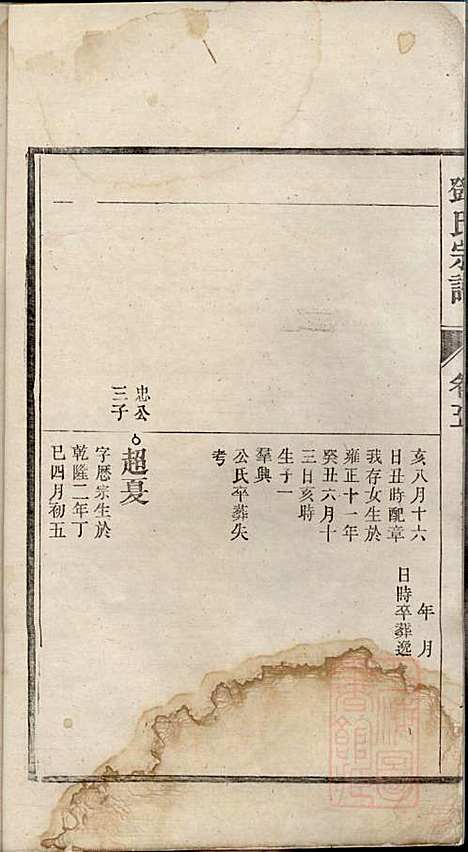 鄧氏宗譜
亥八月十六
日丑時配章
我存女生於
雍正十一年
癸丑六月十
三日亥時
生子一
羣興
公氏卒葬失
考
年月
日時卒葬逸
忠公
三子
超夏
字曆宗生於
乾隆二年丁
巳四月初五